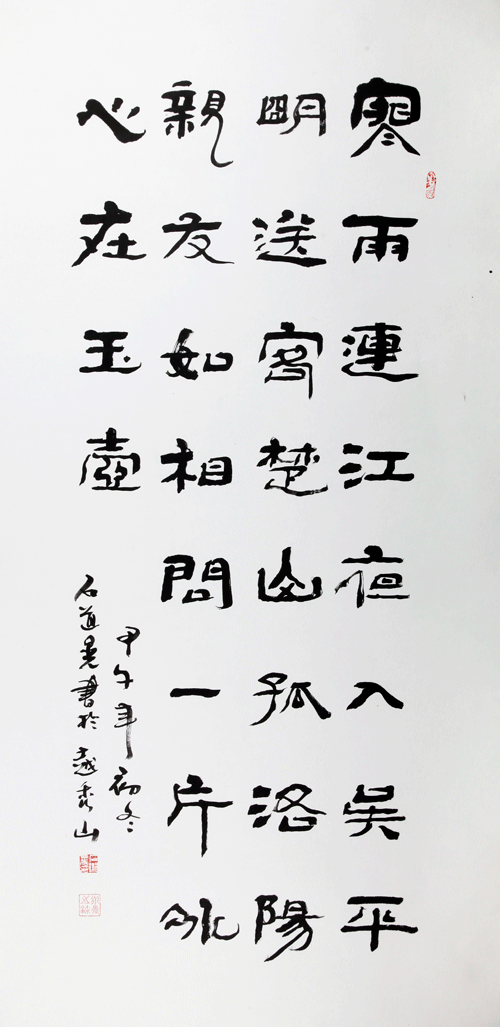 寒雨連江夜入吳平
明送客楚山孤洛陽
親友如相問一片冰
心在玉壺
甲午年初冬
石道晃書於越秀山